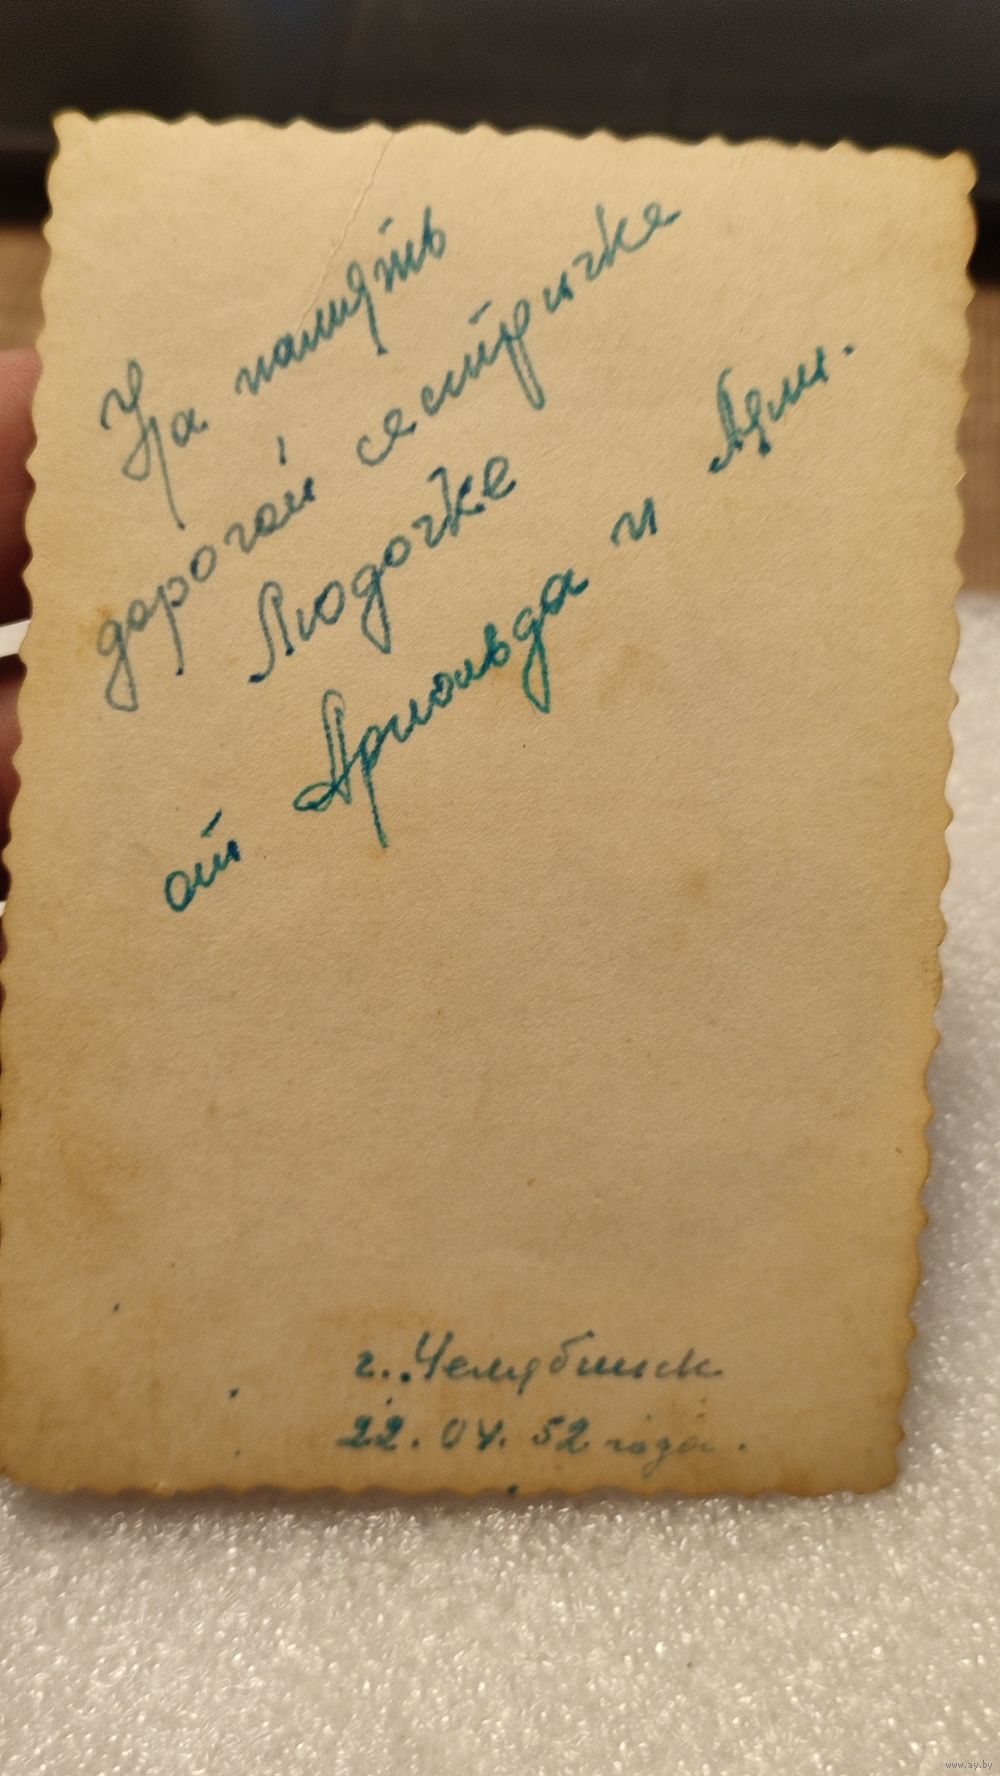 На память
дорогой сестричке
Людочке
от Арнольда и
г. Челябинск
22.04.52 года.
www.ay.by